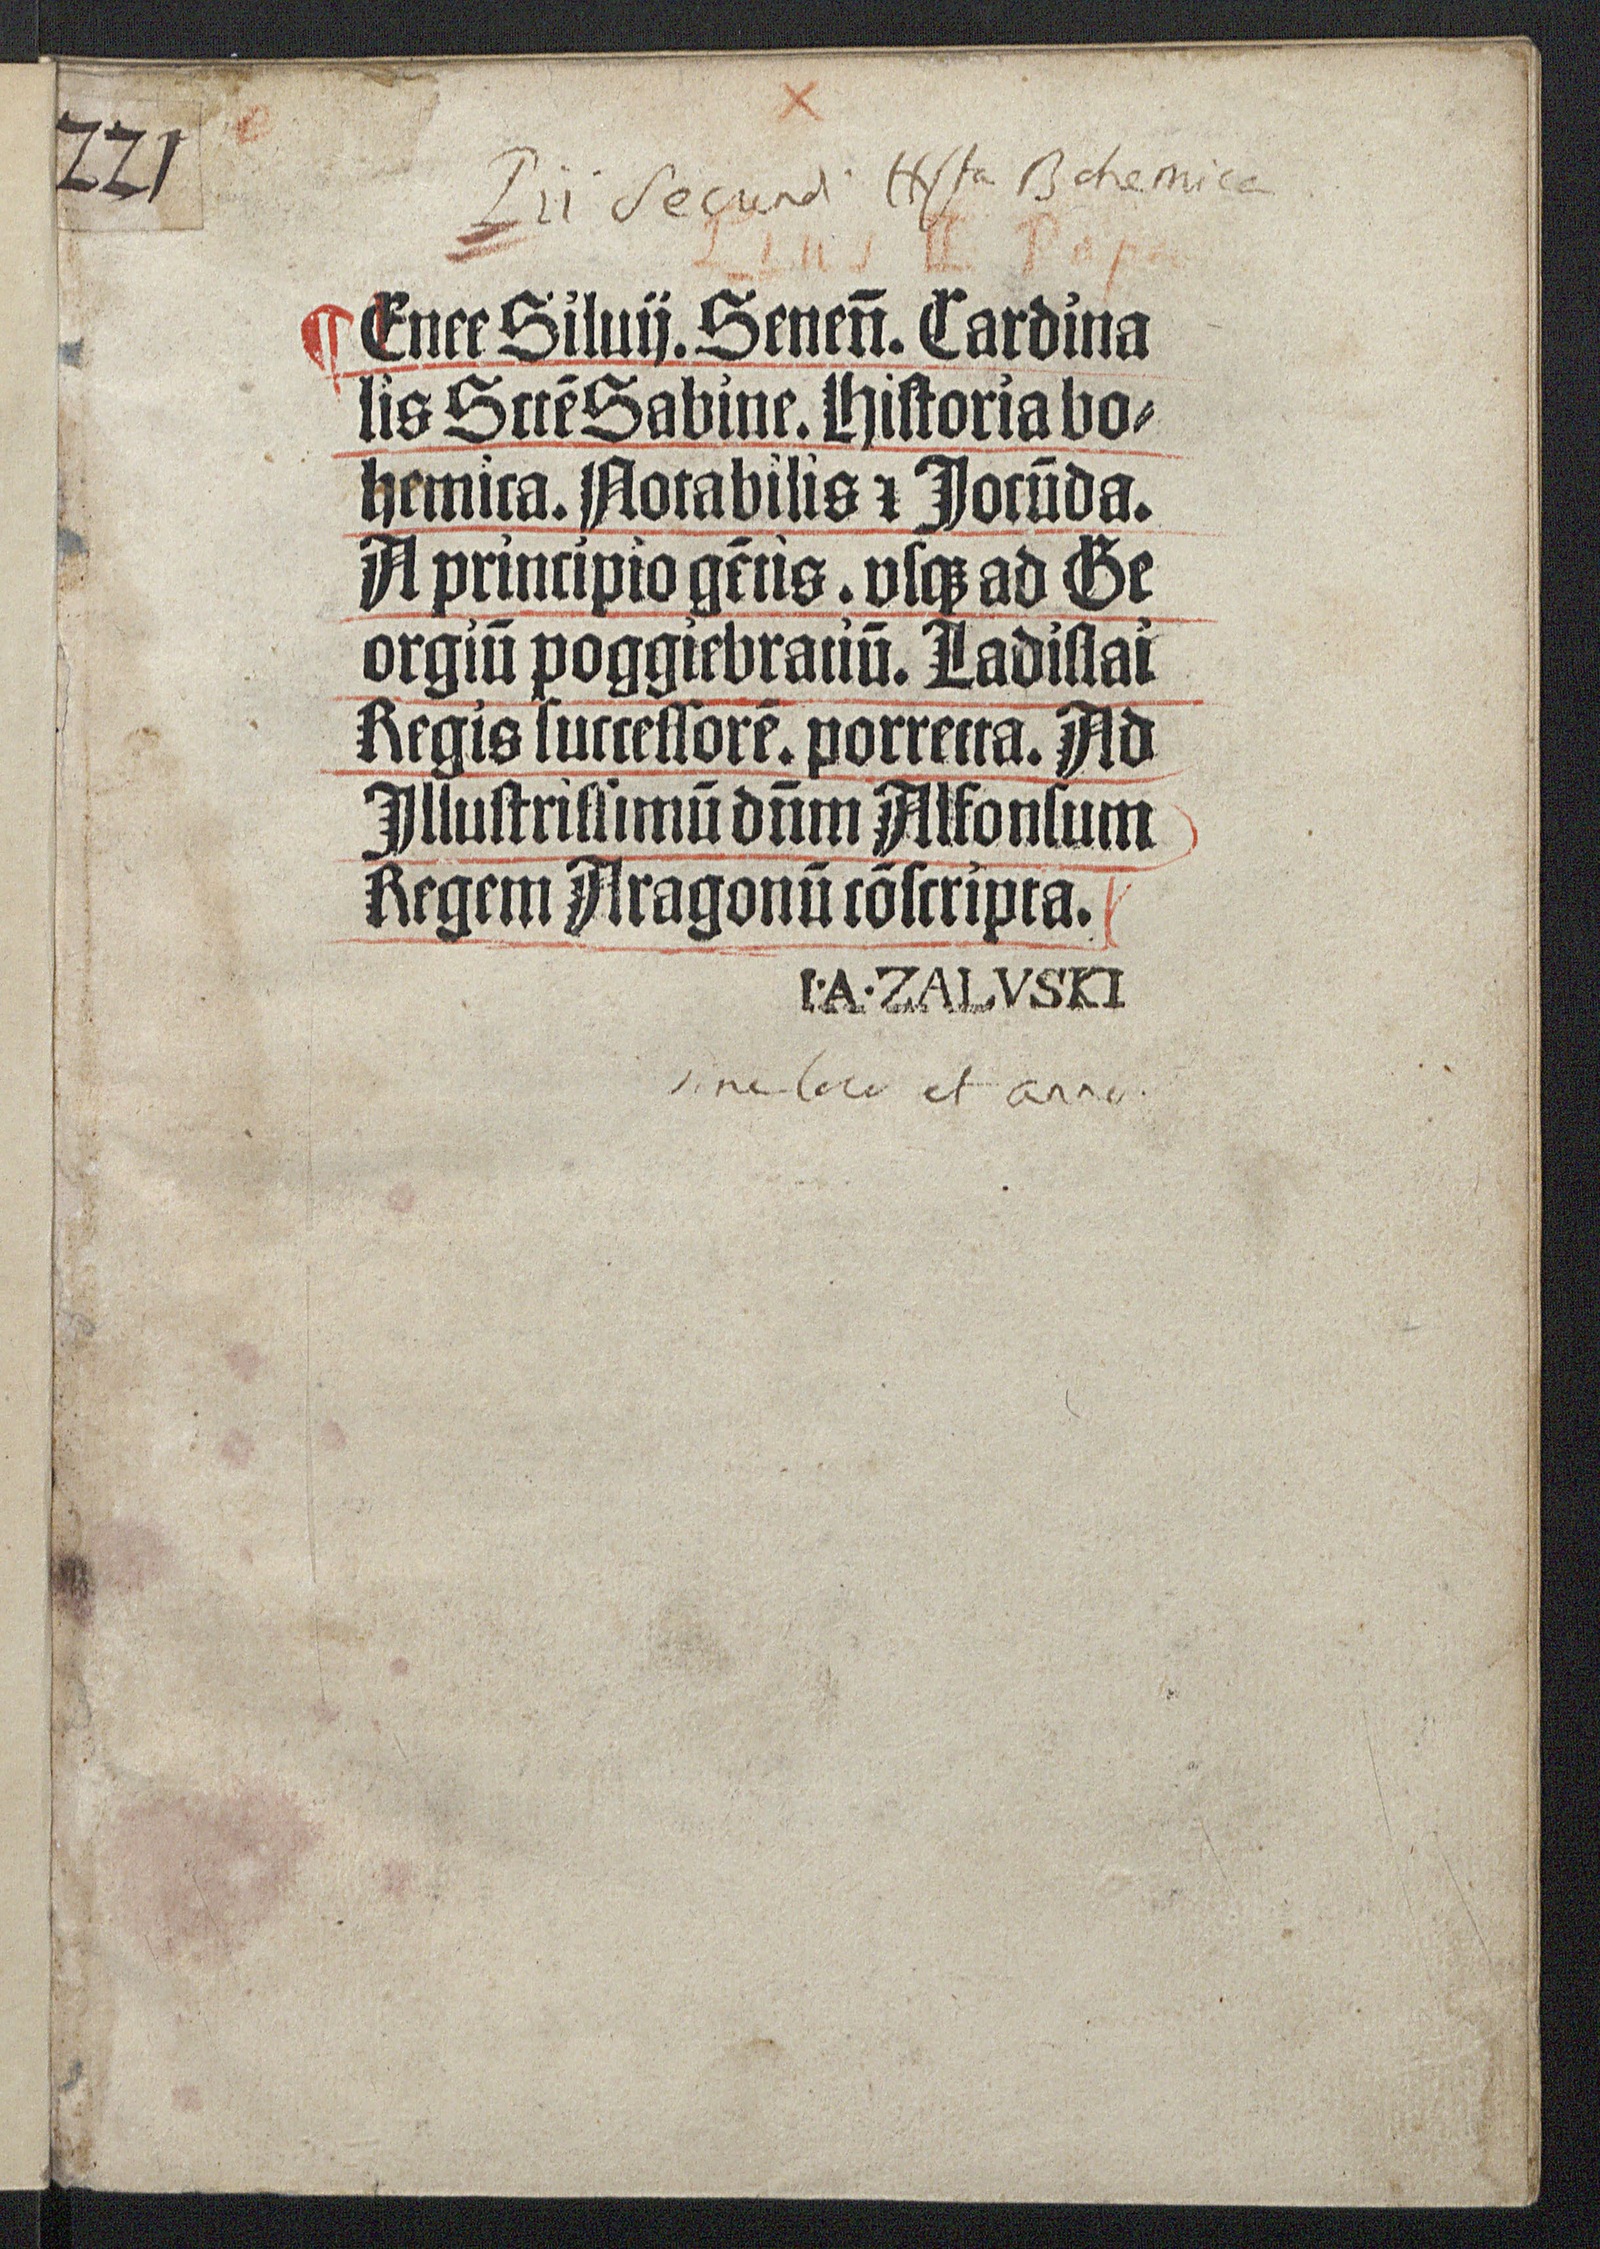 221
x
Pii Secundi Hista Bohemica
Pius II Papa
¶ Enee Siluij. Seneñ. Cardina
lis Sctē Sabine. Historia bo⸗
hemica. Notabilis ⁊ Jocūda.
A principio gētis. vsqꝫ ad Ge
orgiū poggiebraciū. Ladislai
Regis successorē. porrecta. Ad
Illustrissimū dn̄m Alfonsum
Regem Aragonū cōscripta.
I·A·ZALVSKI
sine loco et anno.